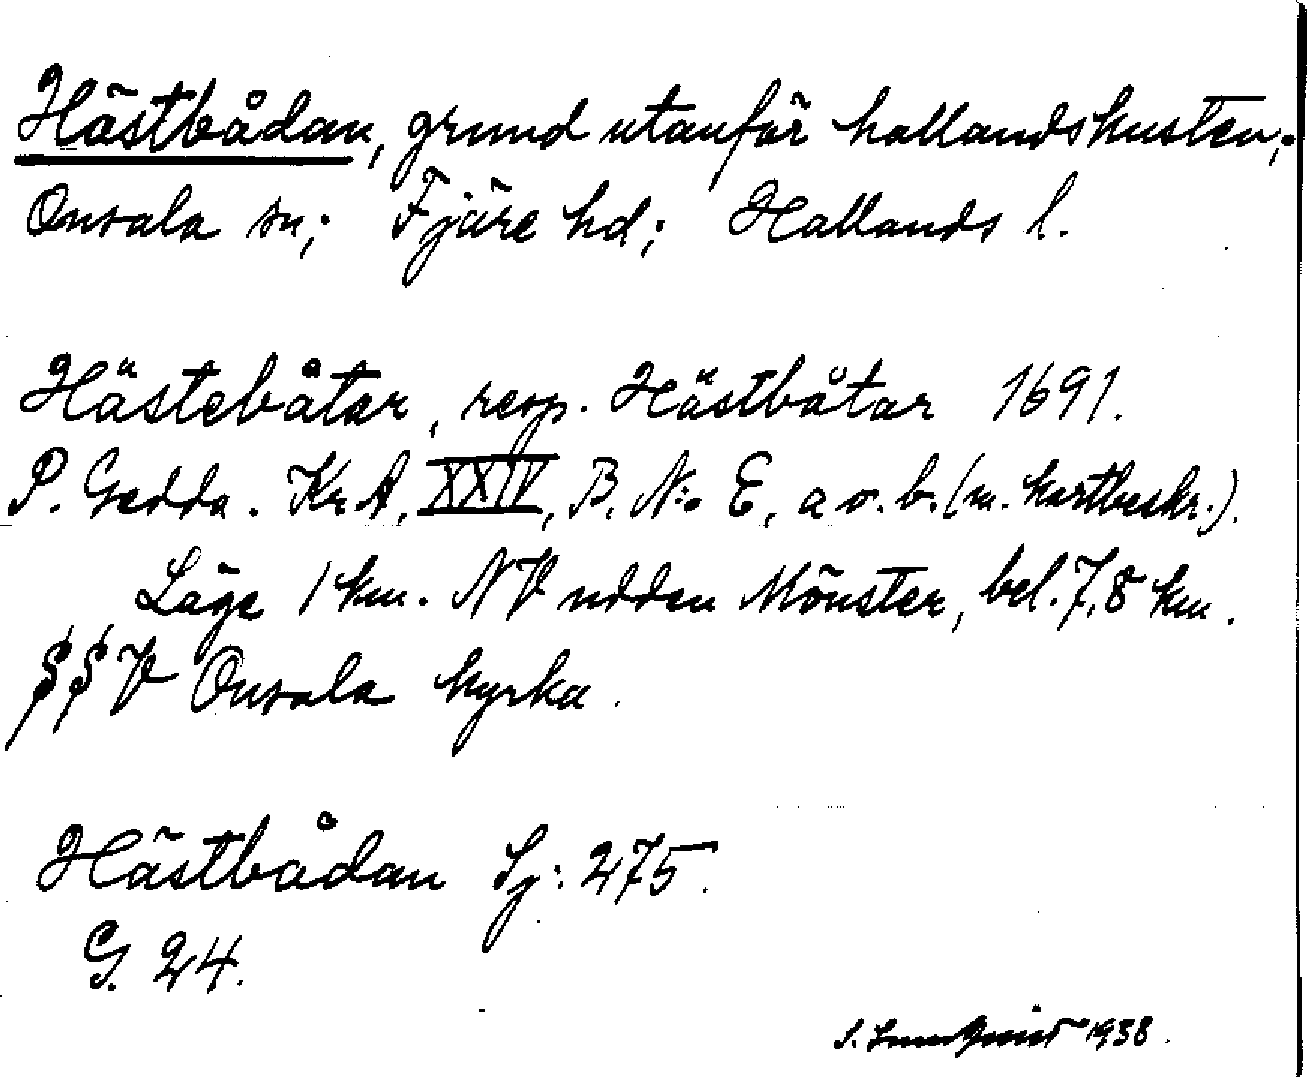 Hästbådan, grund utanför hallandskusten;
Onsala sn; Fjäre hd; Hallands l.
Hästebåtar, resp. Hästbåtar 1691.
P. Gedda. Kr. A. XXIV, B. N:o E, a o. b. (m. kartbeskr.).
Läge 1 km. NV udden Mönster, bel. 7,8 km.
§§ V Onsala kyrka.
Hästbådan Sj: 275.
G. 24.
S. 1938.